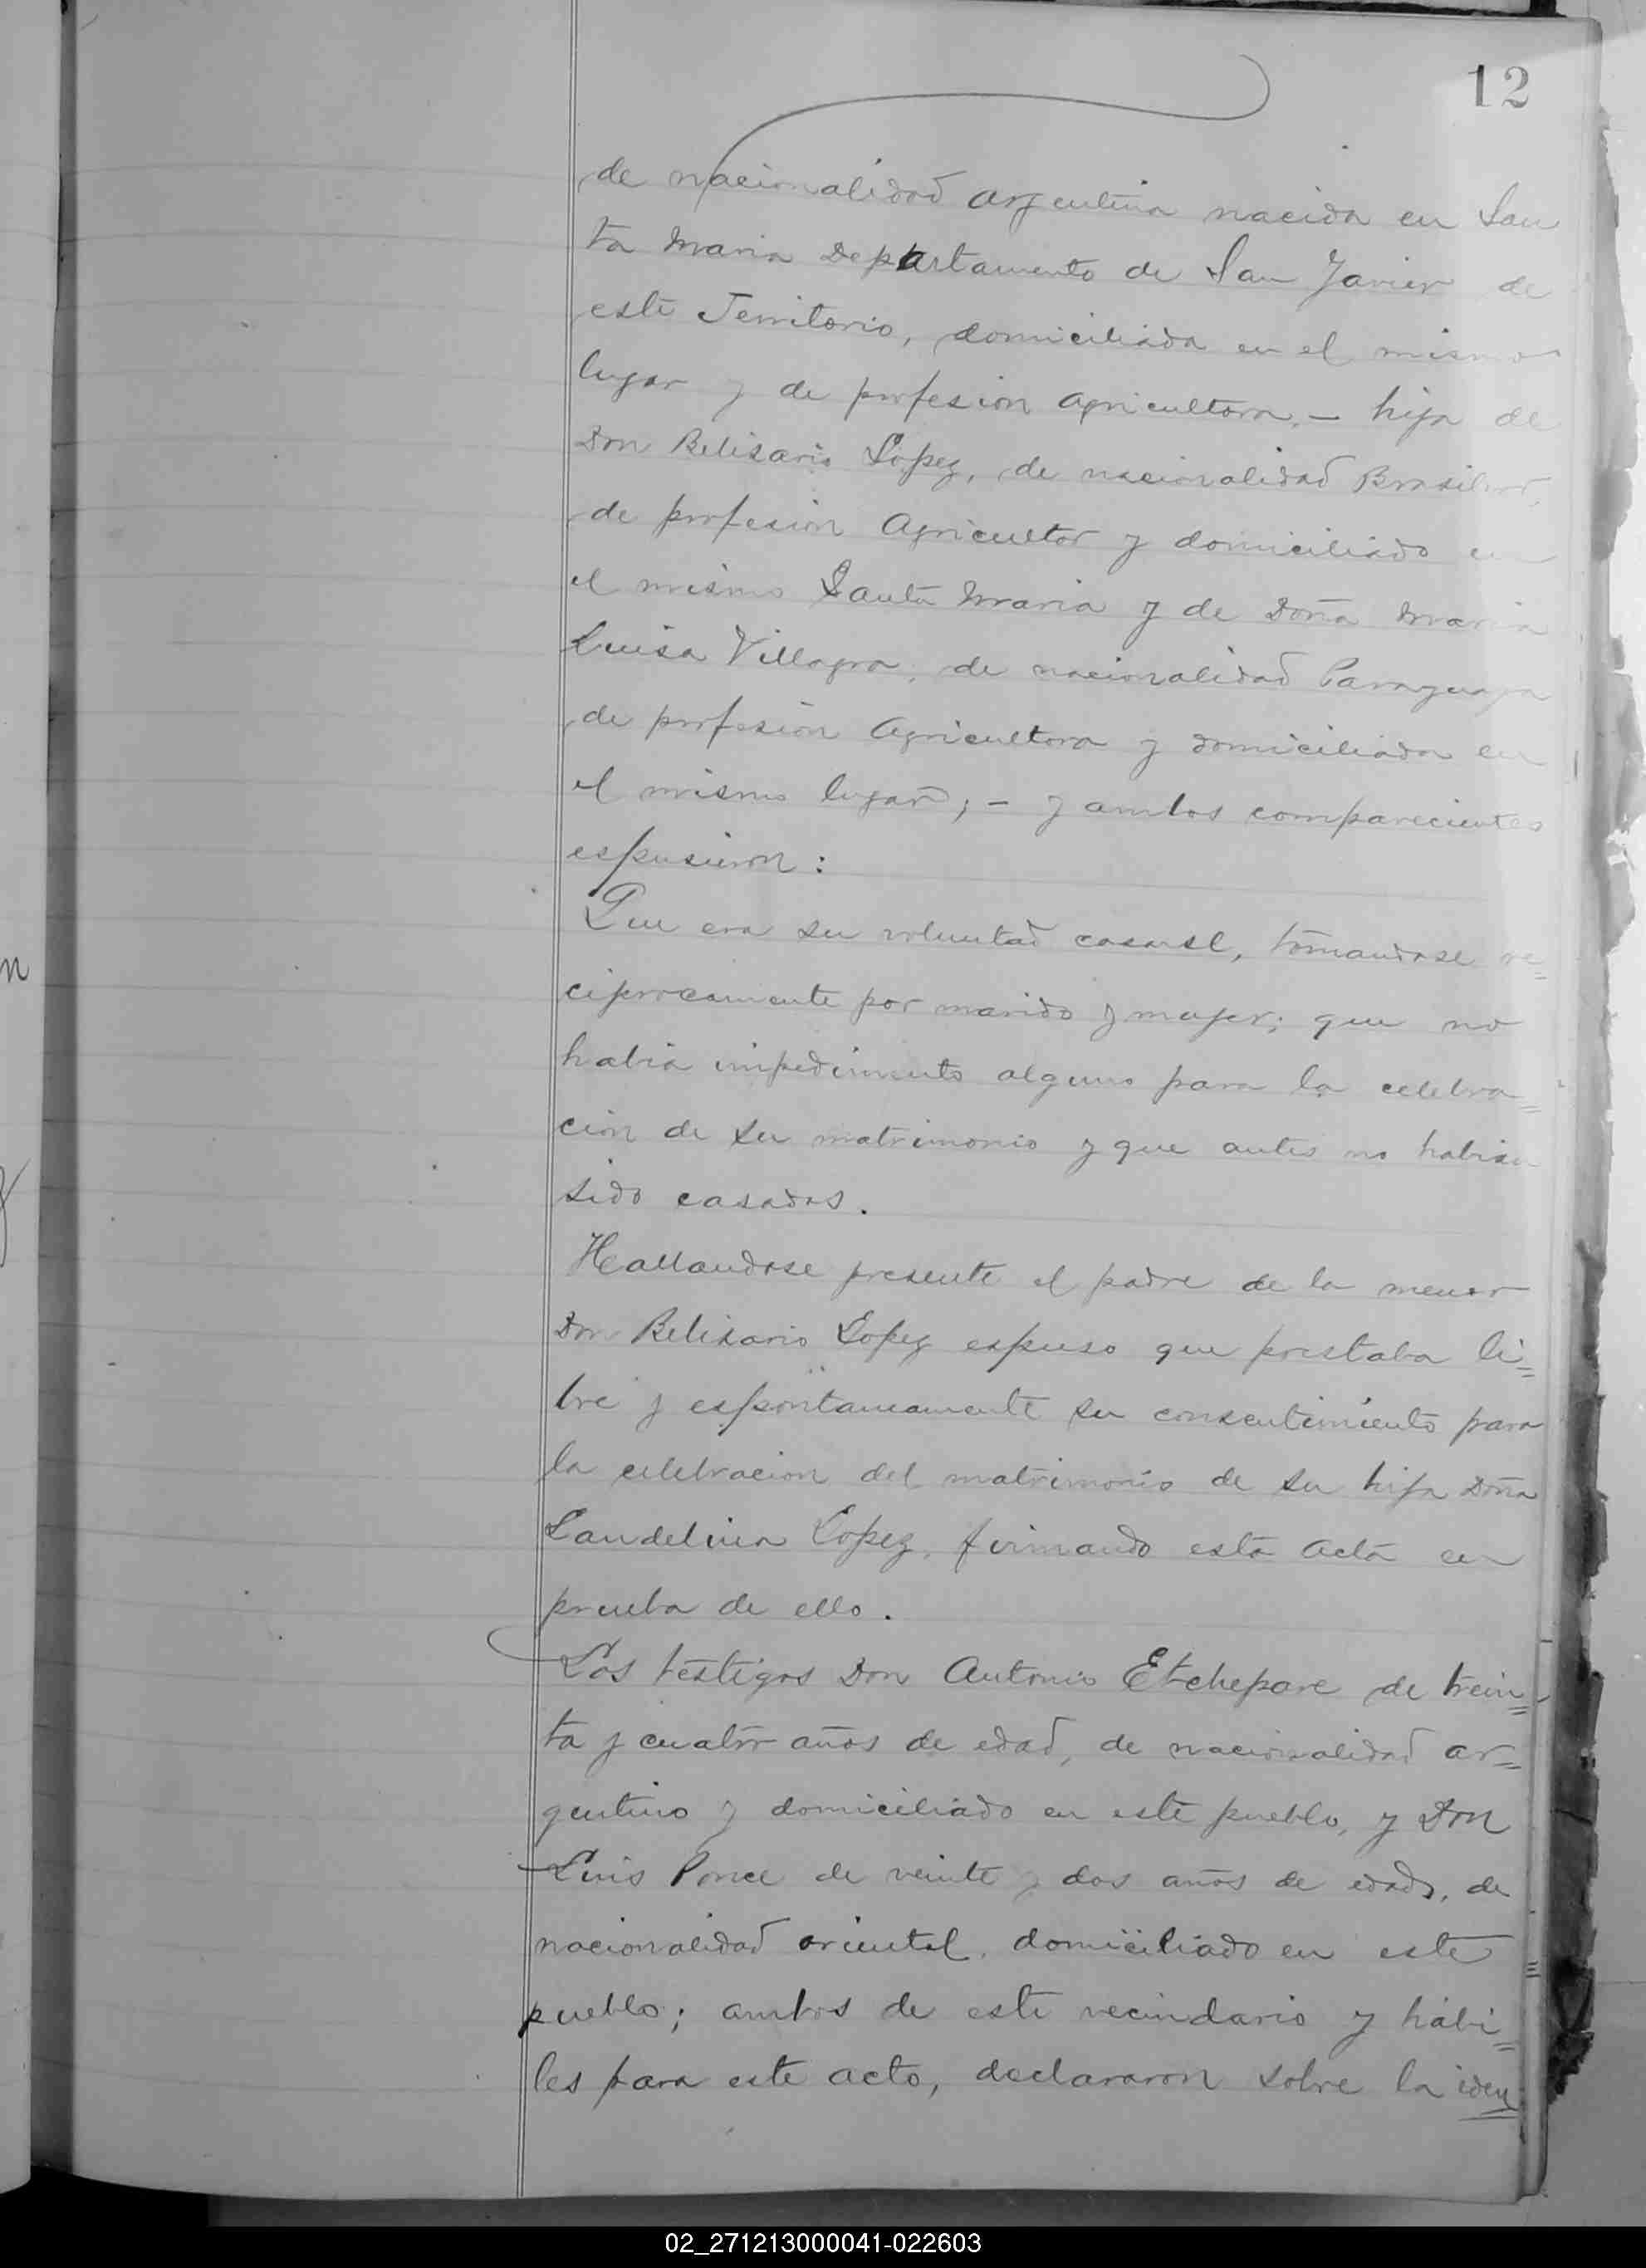 12
de nacionalidad argentina nacida en San
ta Maria Departamento de San Javier de
este Territorio, domiciliada en el mismo
lugar y de profesion agricultora. — hija de
Don Belisario Lopez, de nacionalidad Brasilera,
de profesion Agricultor y domiciliado en
el mismo Santa Maria y de Doña Maria
Luisa Villagra, de nacionalidad Paraguaya
de profesion Agricultora y domiciliada en
el mismo lugar; — y ambos comparecientes
espusieron:
Que era su voluntad casarse, tomandose re=
ciprocamente por marido y mujer; que no
habia impedimento alguno para la celebra=
cion de su matrimonio y que antes no habian
sido casados.
Hallandose presente el padre de la menor
Don Belisario Lopez espuso que prestaba li=
bre y espontaneamente su consentimiento para
la celebracion del matrimonio de su hija Doña
Candelina Lopez, firmando esta acta en
prueba de ello.
Los testigos Don Antonio Etchepare de trein=
ta y cuatro años de edad, de nacionalidad ar=
gentino y domiciliado en este pueblo, y Don
Luis Ponce de veinte y dos años de edad, de
nacionalidad oriental, domiciliado en este
pueblo; ambos de este vecindario y hábi=
les para este acto, declararon sobre la iden
02_271213000041-022603